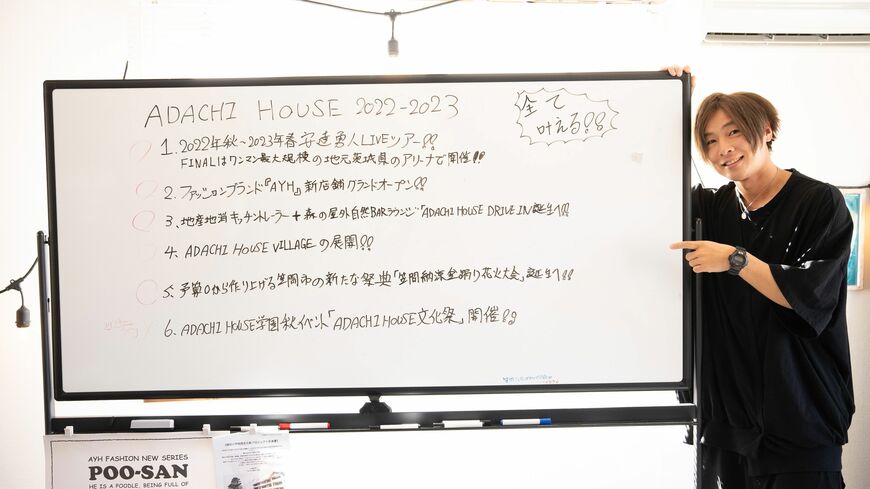 ADACHI HOUSE 2022-2023
全て
叶える!!
1. 2022年秋~2023年春安達勇人LIVEツアー!!
FINALはワンマン最大規模の地元茨城県のアリーナで開催!!
2. ファッションブランド『AYH』新店舗グランドオープン!!
3. 地産地消キッチントレーラー+森の屋外自然BARラウンジ「ADACHI HOUSE DRIVE IN」誕生へ!!
4. ADACHI HOUSE VILLAGEの展開!!
5. 予算0から作り上げる笠間市の新たな祭典「笠間納涼盆踊り花火大会」誕生へ!!
6. ADACHI HOUSE学園秋イベント「ADACHI HOUSE文化祭」開催!!
AYH FASHION NEW SERIES
POO-SAN
HE IS A POODLE, BEING FULL OF